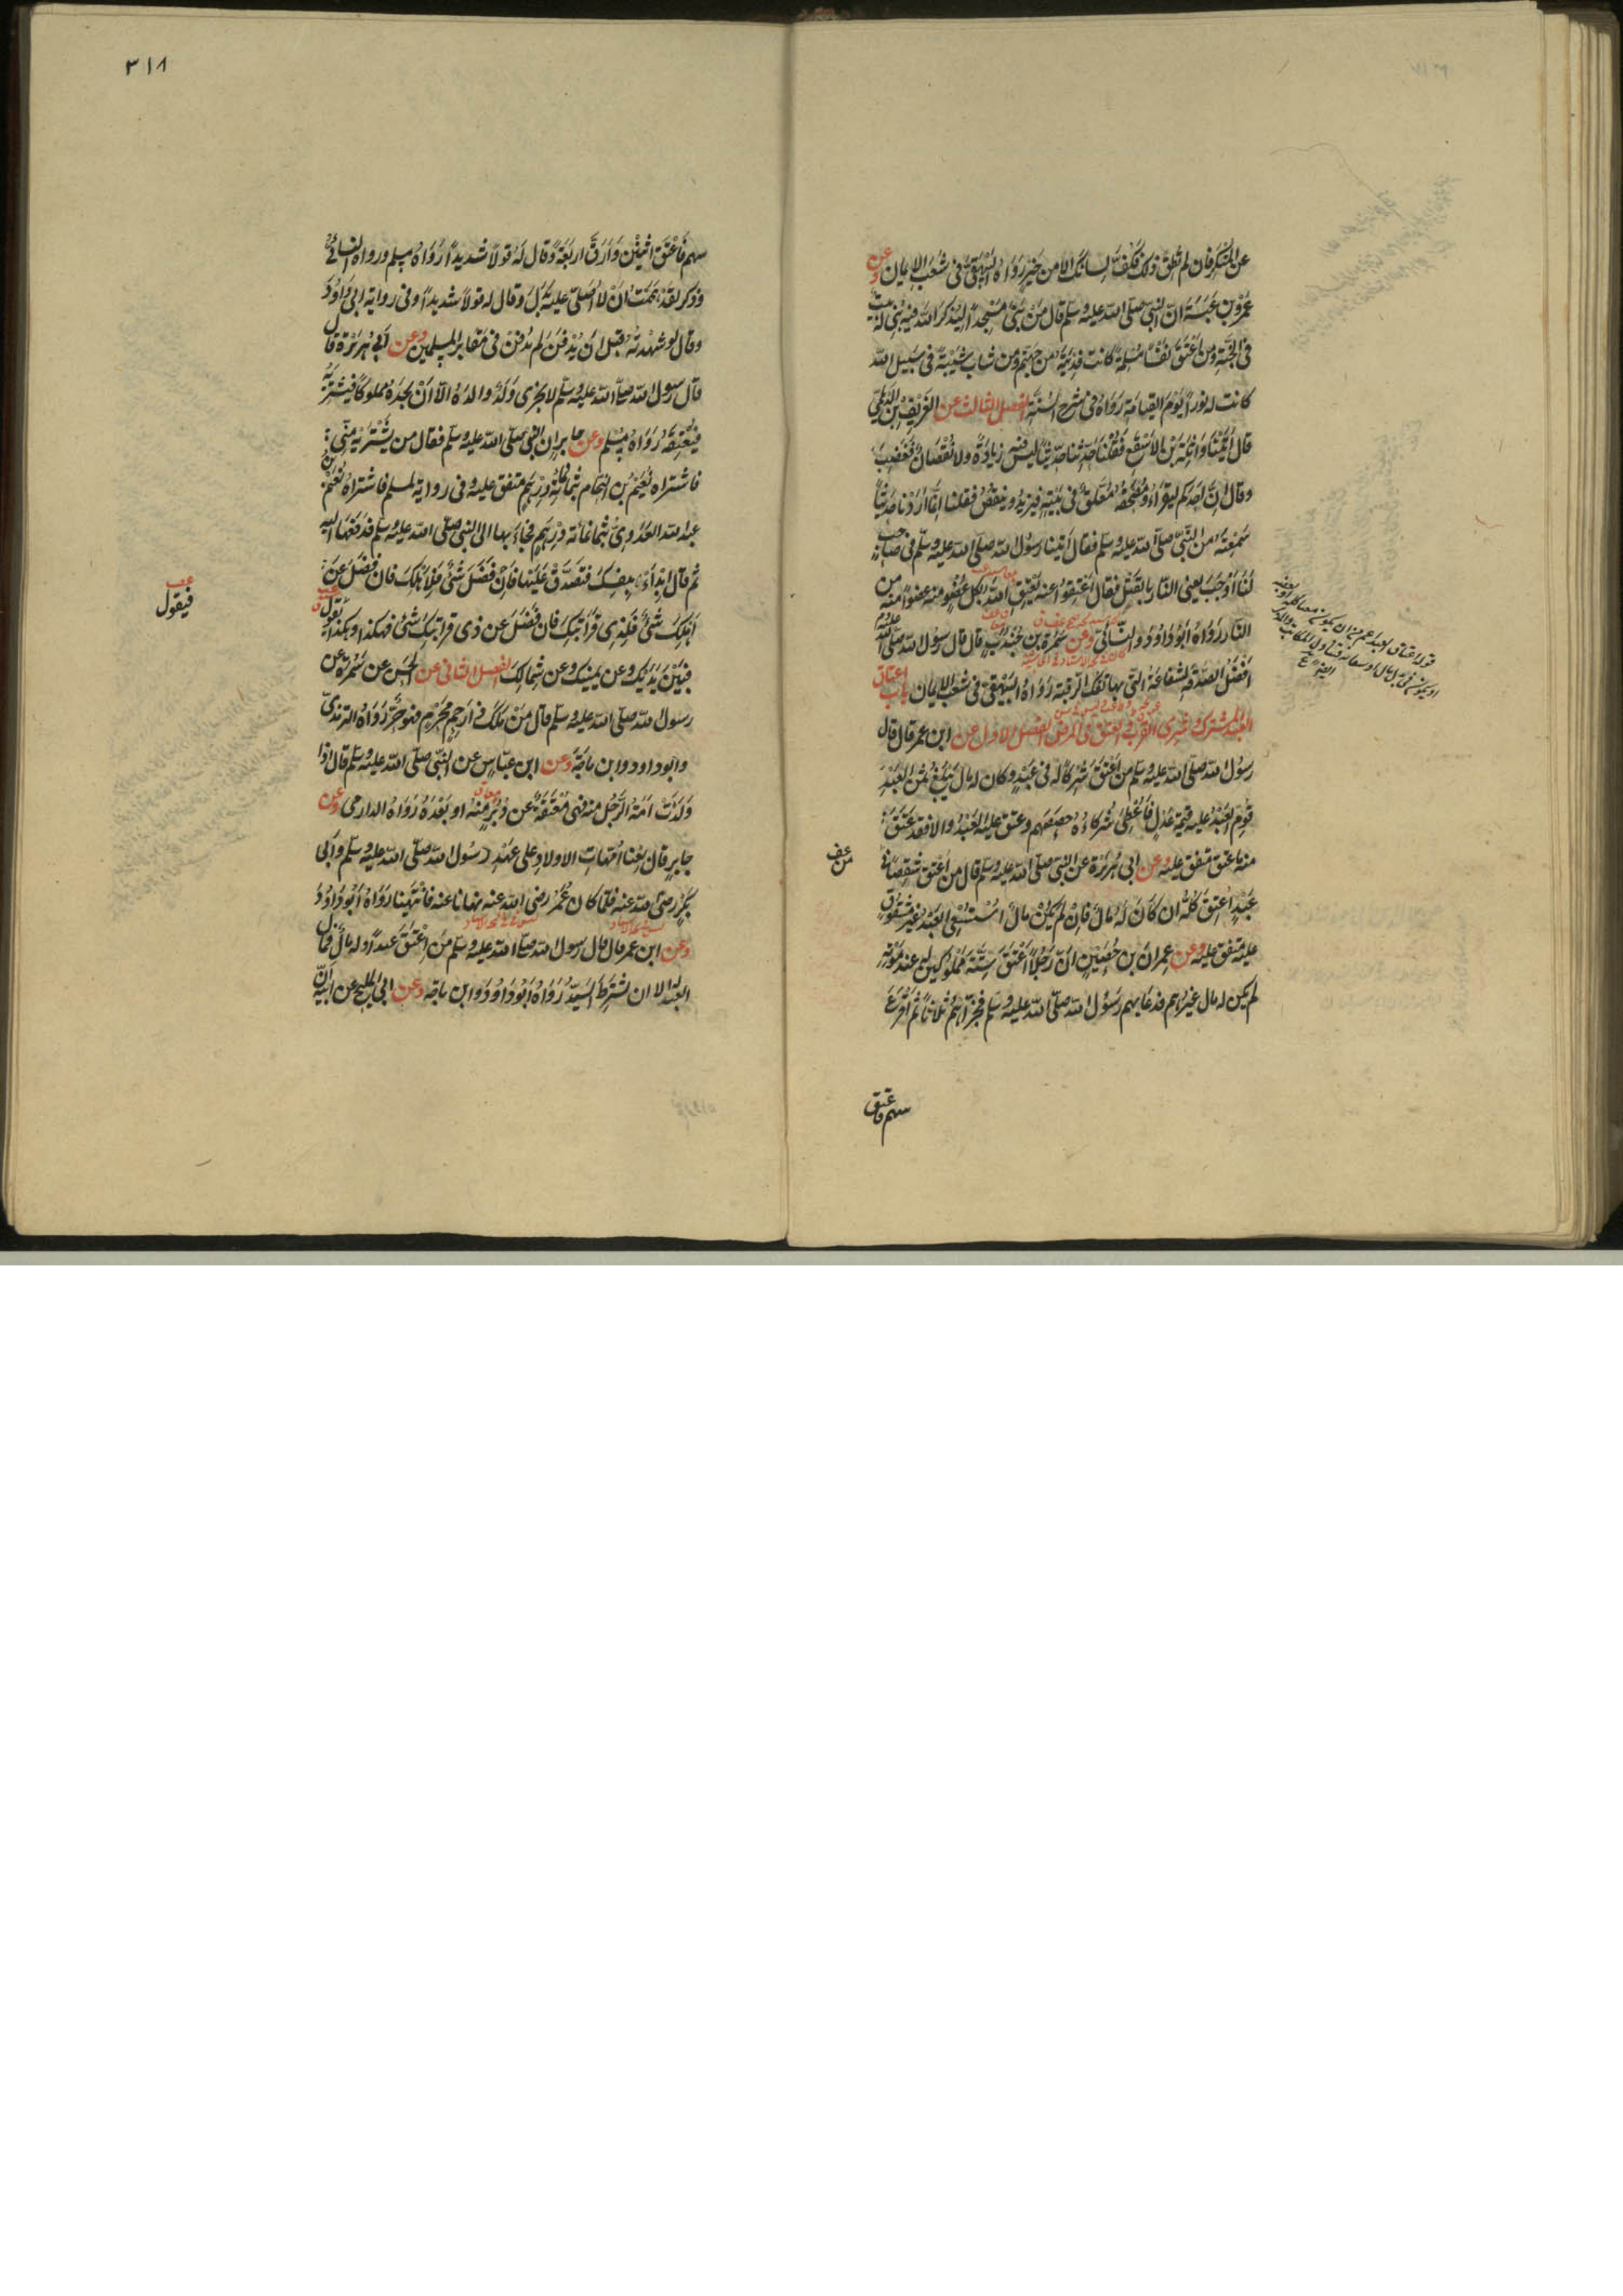 عن المنكر فان لم تطق ذلك فكف لسانك الا من خير رواه البيهقى فى شعب الايمان وعن
عمرو بن عبسة ان النبى صلى الله عليه وسلم قال من بنى مسجدا ليذكر الله فيه بنى له بيت
فى الجنة ومن اعتق نفسا مسلمة كانت فديته من جهنم ومن شاب شيبة فى سبيل الله
كانت له نورا يوم القيامة رواه فى شرح السنة الفصل الثالث عن الغريف بن الديلمى
قال اتينا واثلة بن الاسقع فقلنا حدثنا حديثا ليس فيه زيادة ولا نقصان فغضب
وقال ان احدكم ليقرأ ومصحفه معلق فى بيته فيزيد وينقص فقلنا انما اردنا حديثا
سمعته من النبى صلى الله عليه وسلم فقال اتينا رسول الله صلى الله عليه وسلم فى صاحب
لنا اوجب يعنى النار بالقتل فقال اعتقوا عنه يعتق الله بكل عضو منه عضوا منه من
النار رواه ابو داود والنسائى وعن سمرة بن جندب قال قال رسول الله صلى الله عليه وسلم
افضل الصدقة الشفاعة التى بها تفك الرقبة رواه البيهقى فى شعب الايمان باب اعتاق
العبد المشترك وشرى القريب والعتق فى المرض الفصل الاول عن ابن عمر قال قال
رسول الله صلى الله عليه وسلم من اعتق شركا له فى عبد وكان له مال يبلغ ثمن العبد
قوم العبد عليه قيمة عدل فاعطى شركاءه حصصهم وعتق عليه العبد والا فقد عتق
منه ما عتق متفق عليه وعن ابى هريرة عن النبى صلى الله عليه وسلم قال من اعتق شقصا فى
عبد اعتق كله ان كان له مال فان لم يكن مال استسعى العبد غير مشقوق
عليه متفق عليه وعن عمران بن حصين ان رجلا اعتق ستة مملوكين له عند موته
لم يكن له مال غيرهم فدعا بهم رسول الله صلى الله عليه وسلم فجزأهم ثلاثا ثم اقرع
سهم فاعتق
٣١٨
سهم فاعتق اثنين وارق اربعة وقال له قولا شديدا رواه مسلم ورواه النسائى
وذكر لقد هممت ان لا اصلى عليه بدل وقال له قولا شديدا وفى رواية ابى داود
وقال لو شهدته قبل ان يدفن لم يدفن فى مقابر المسلمين وعن ابى هريرة قال
قال رسول الله صلى الله عليه وسلم لا يجزى ولد والده الا ان يجده مملوكا فيشتريه
فيعتقه رواه مسلم وعن جابر ان النبى صلى الله عليه وسلم فقال من يشتريه منى
فاشتراه نعيم بن النحام بثمانمائة درهم متفق عليه وفى رواية لمسلم فاشتراه نعيم بن
عبد الله العدوى بثمانمائة درهم فجاء بها الى النبى صلى الله عليه وسلم فدفعها اليه
ثم قال ابدأ بنفسك فتصدق عليها فان فضل شئ فلاهلك فان فضل عن
اهلك شئ فلذى قرابتك فان فضل عن ذى قرابتك شئ فهكذا وهكذا يقول
فبين يديك وعن يمينك وعن شمالك الفصل الثانى عن الحسن عن سمرة عن
رسول الله صلى الله عليه وسلم قال من ملك ذا رحم محرم فهو حر رواه الترمذى
وابو داود وابن ماجة وعن ابن عباس عن النبى صلى الله عليه وسلم قال اذا
ولدت امة الرجل منه فهى معتقة عن دبر منه او بعده رواه الدارمى وعن
جابر قال بعنا امهات الاولاد على عهد رسول الله صلى الله عليه وسلم وابى
بكر رضى الله عنه فلما كان عمر رضى الله عنه نهانا عنه فانتهينا رواه ابو داود
وعن ابن عمر قال قال رسول الله صلى الله عليه وسلم من اعتق عبدا وله مال فمال
العبد له الا ان يشترط السيد رواه ابو داود وابن ماجة وعن ابى المليح عن ابيه ان
فيقول